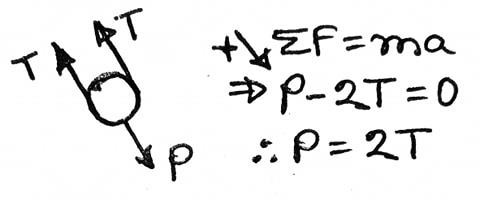 T
T
P
+↘ ΣF = ma
⇒ P - 2T = 0
∴ P = 2T